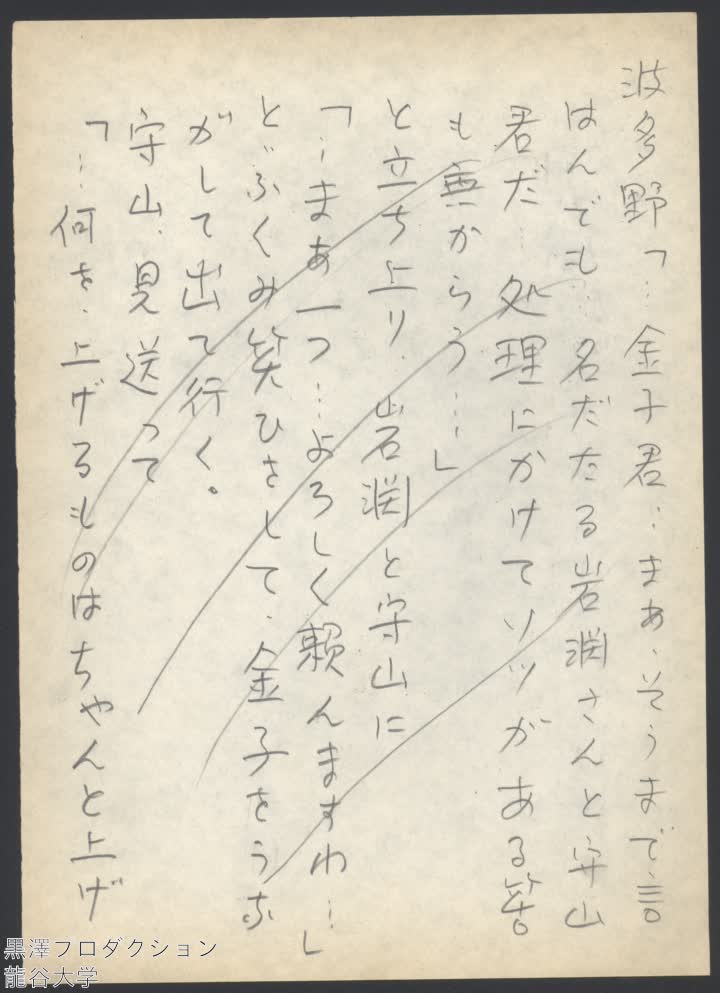 波多野「…金子君…まあ、そうまで言
はんでも…名だたる岩淵さんと守山
君だ…処理にかけてソツがある筈
も無からう…」
と立ち上り、岩淵と守山に
「…まあ一つ…よろしく頼んますわ…」
とふくみ笑ひさして、金子をうな
がして出て行く。
守山、見送って
「…何を、上げるものはちゃんと上げ
黒澤プロダクション
龍谷大学